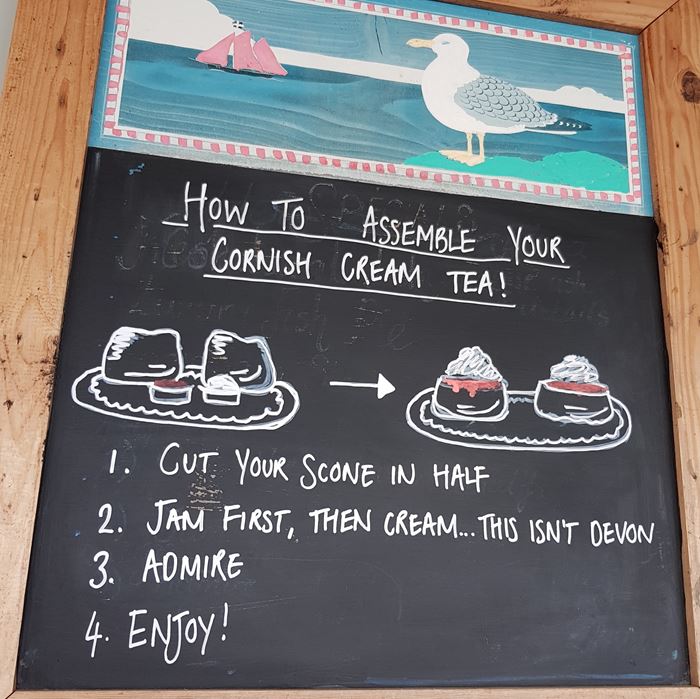 HOW TO ASSEMBLE YOUR
CORNISH CREAM TEA!
1. CUT YOUR SCONE IN HALF
2. JAM FIRST, THEN CREAM... THIS ISN'T DEVON
3. ADMIRE
4. ENJOY!